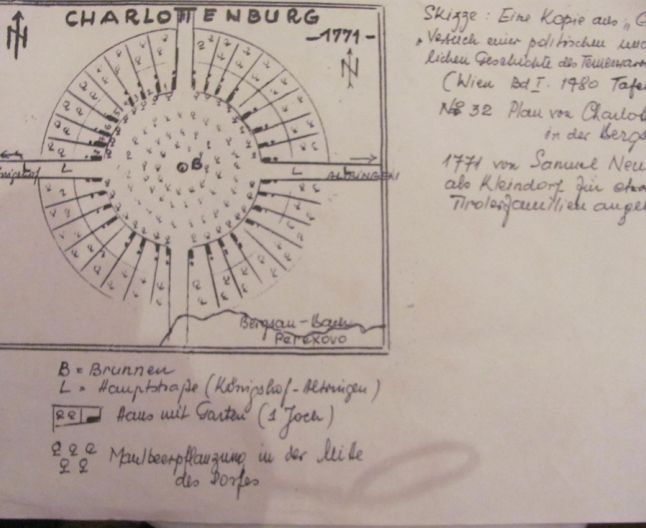 CHARLOTTENBURG
-1771-
N
N
B
L
L
L
ALTRINGEN
Bergsau-Bach
Perexovo
B = Brunnen
L = Hauptstraße (Königshof-Altringen)
Haus mit Garten (1 Joch)
Maulbeerpflanzung in der Mitte
des Dorfes
Skizze: Eine Kopie aus "G
"Versuch einer politischen und
lichen Geschichte des Temeswar
(Wien Bd I. 1780 Tafe
No 32 Plan von Charlot
in der Bergs
1771 von Samuel Neu
als Kleindorf für
Tirolerfamilien angel